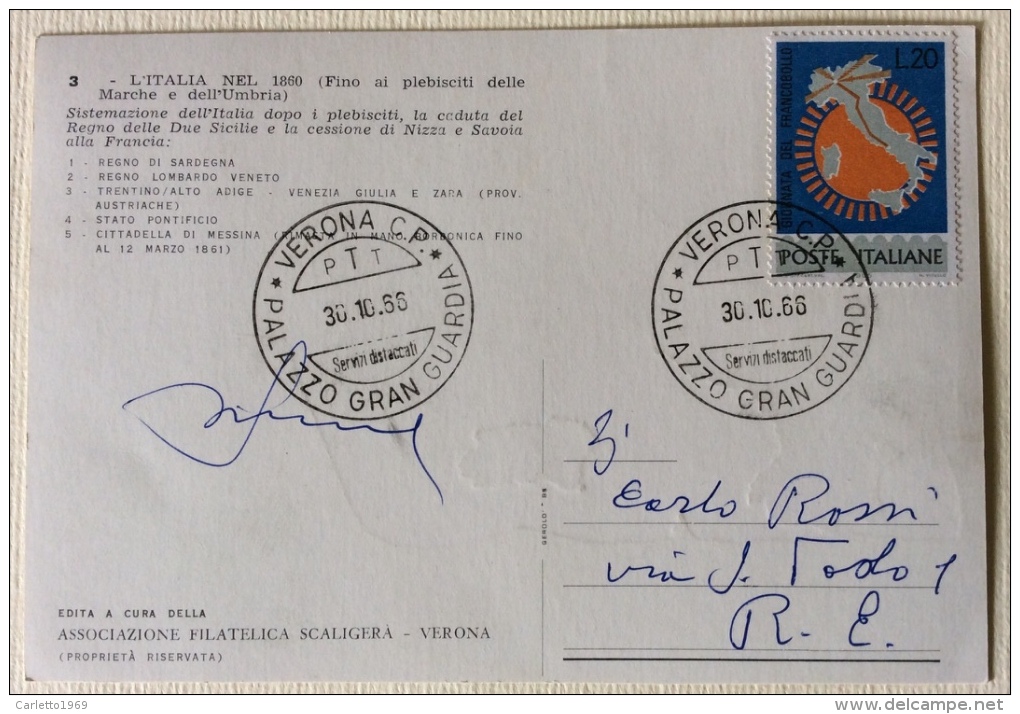 3 - L'ITALIA NEL 1860 (Fino ai plebisciti delle
Marche e dell'Umbria)
Sistemazione dell'Italia dopo i plebisciti, la caduta del
Regno delle Due Sicilie e la cessione di Nizza e Savoia
alla Francia:
1 - REGNO DI SARDEGNA
2 - REGNO LOMBARDO VENETO
3 - TRENTINO/ALTO ADIGE - VENEZIA GIULIA E ZARA (PROV.
AUSTRIACHE)
4 - STATO PONTIFICIO
5 - CITTADELLA DI MESSINA (RIMASTA IN MANO BORBONICA FINO
AL 12 MARZO 1861)
L.20
GIORNATA DEL FRANCOBOLLO
POSTE ITALIANE
* VERONA C.P. *
PTT
30.10.66
Servizi distaccati
PALAZZO GRAN GUARDIA
* VERONA C.P. *
PTT
30.10.66
Servizi distaccati
PALAZZO GRAN GUARDIA
Carlo Rossi
via S. Todo 1
R. E.
GEROLD.
EDITA A CURA DELLA
ASSOCIAZIONE FILATELICA SCALIGERA - VERONA
(PROPRIETÀ RISERVATA)
Carletto1969
delcampe.net